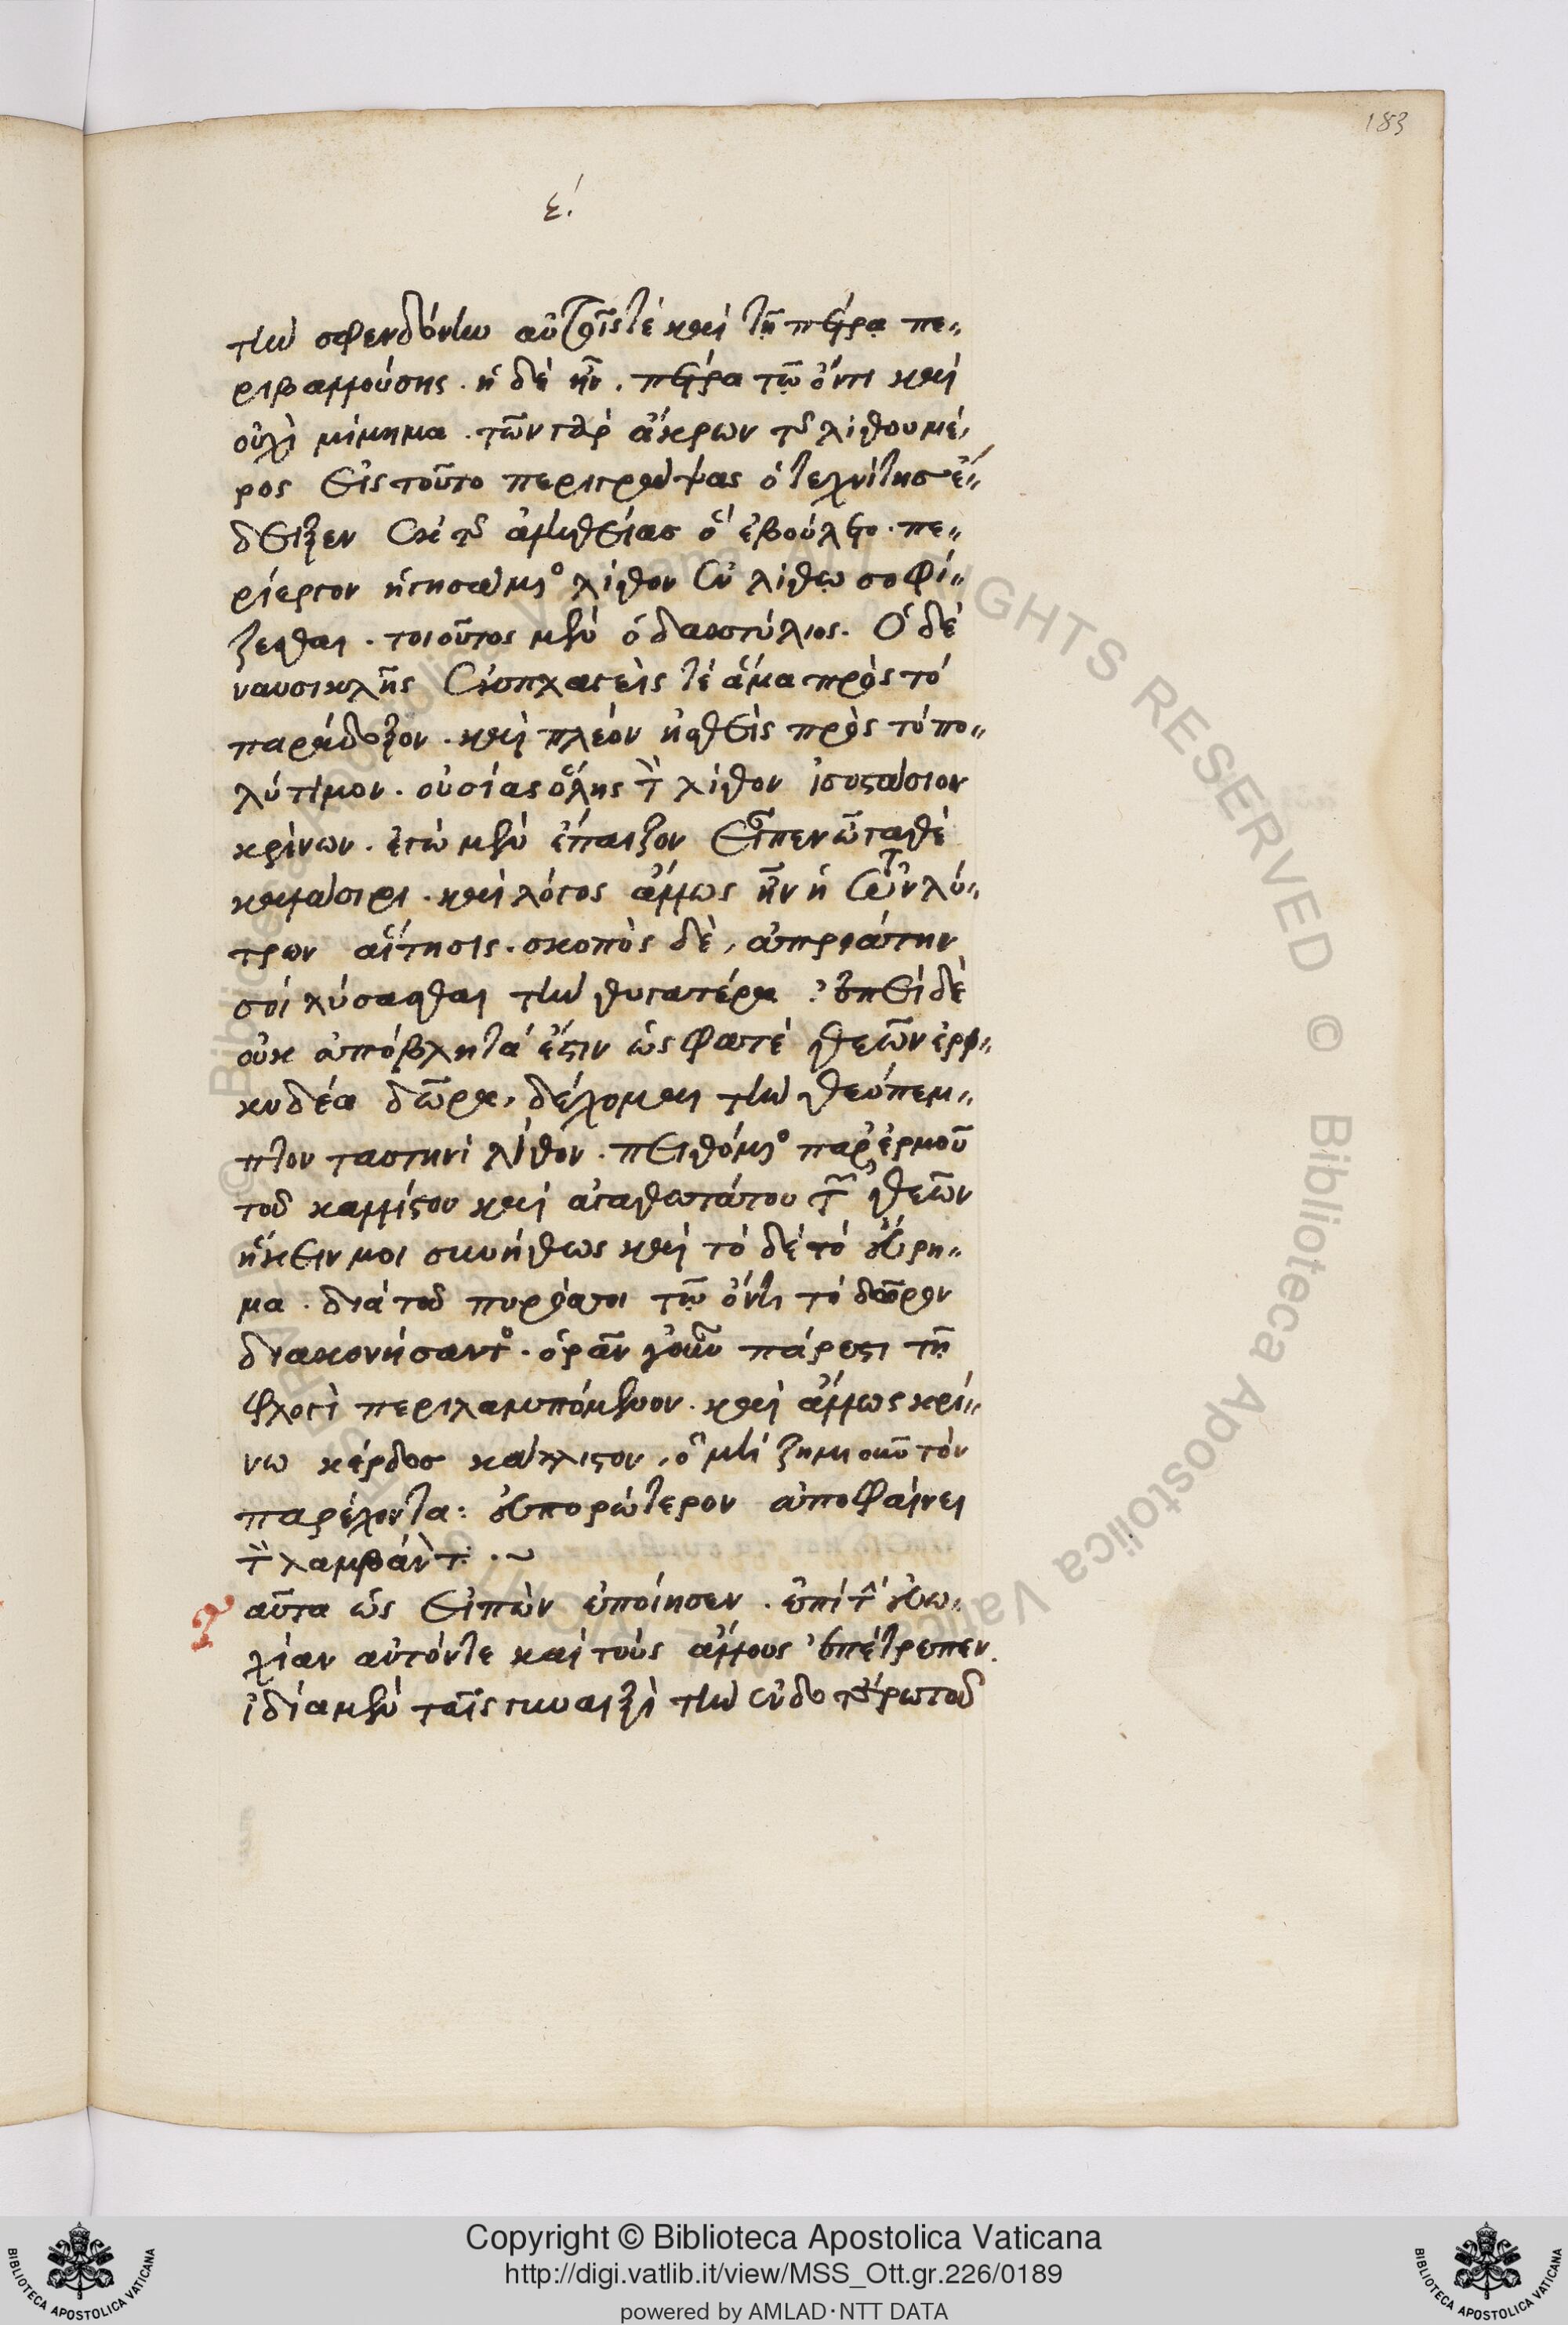 183
ε΄.
τὴν σφενδόνην αὐτοῖς τὲ καὶ τῇ πέτρᾳ πε„
ριβαλλούσης. ἡ δὲ ἦν. πέτρα τῷ ὄντι καὶ
οὐχὶ μίμημα. τῶν γὰρ ἄκρων τοῦ λίθου μέ„
ρος εἰς τοῦτο περιγράψας ὁ τεχνίτης ἔ„
δειξεν ἐκ τῆς ἀληθείας ὃ ἐβούλετο. πε„
ρίεργον ἡγησάμενος λίθον ἐν λίθω σοφί„
ζεσθαι. τοιοῦτος μὲν ὁ δακτύλιος. Ὁ δὲ
ναυσικλῆς ἐκπλαγεὶς τὲ ἅμα πρὸς τὸ
παράδοξον. καὶ πλέον ἡσθεὶς πρὸς τὸ πο„
λύτιμον. οὐσίας ὅλης τὸν λίθον ἰσοστάσιον
κρίνων. ἐγὼ μὲν ἔπαιζον εἶπεν ὦ γαθὲ
καλάσιρι. καὶ λόγος ἄλλως ἦν ἡ τῶν λύ„
τρων αἴτησις. σκοπὸς δὲ, ἀπριάτην
σοι λύσασθαι τὴν θυγατέρα. ἐπεὶ δὲ
οὐκ ἀπόβλητά ἐστιν ὥς φατὲ θεῶν ἐρι„
κυδέα δῶρα, δέχομαι τὴν θεόπεμ„
πτον ταυτηνὶ λίθον. πειθόμενος παρ' ἑρμοῦ
τοῦ καλλίστου καὶ ἀγαθωτάτου τῶν θεῶν
ἥκειν μοι συνήθως καὶ τὸ δὲ τὸ εὕρη„
μα. διὰ τοῦ πυρός σοι τῷ ὄντι τὸ δῶρον
διακονήσαντος. ὁρᾶν γοῦν πάρεστι τῇ
φλογὶ περιλαμπόμενον. καὶ ἄλλως κρί„
νω κέρδος κάλλιστον, ὃ μὴ ζημιοῦν τὸν
παρέχοντα: εὐπορώτερον ἀποφαίνει
τὸν λαμβάνοντα. ~
αῦτα ὡς εἰπὼν ἐποίησεν. ἐπὶ τὴν εὐω„
χίαν αὐτόν τε καὶ τοὺς ἄλλους ἐπέτρεπεν.
ἰδία μὲν ταῖς γυναιξὶ τὴν ἐνδοτέρω τοῦ
Copyright © Biblioteca Apostolica Vaticana
http://digi.vatlib.it/view/MSS_Ott.gr.226/0189
powered by AMLAD·NTT DATA